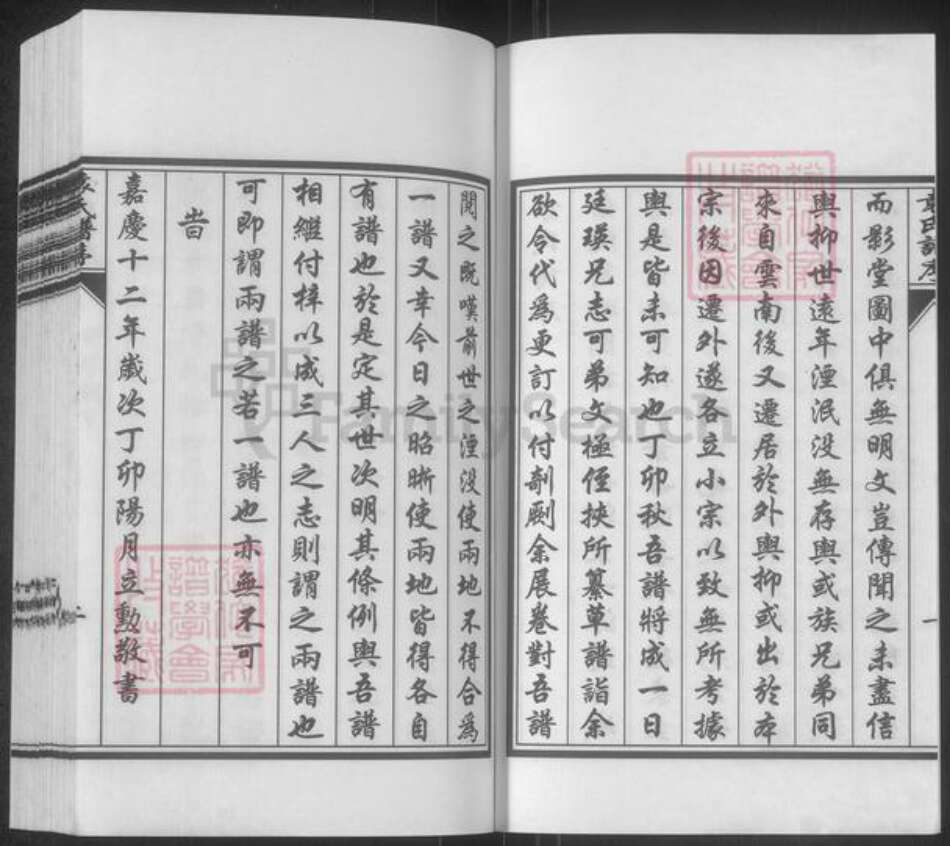 袁氏譜序
而影堂圖中俱無明文豈傳聞之未盡信
與抑世遠年湮泯沒無存與或族兄弟同
來自雲南後又遷居於外與抑或出於本
宗後因遷外遂各立小宗以致無所考據
與是皆未可知也丁卯秋吾譜將成一日
廷瑛兄志可弟文極侄挾所纂草譜詣余
欲令代為更訂以付剞劂余展卷對吾譜
一
閱之既嘆前世之湮沒使兩地不得合為
一譜又幸今日之昭晰使兩地皆得各自
有譜也於是定其世次明其條例與吾譜
相繼付梓以成三人之志則謂之兩譜也
可即謂兩譜之若一譜也亦無不可
旹
嘉慶十二年歲次丁卯陽月立勳敬書
FamilySearch